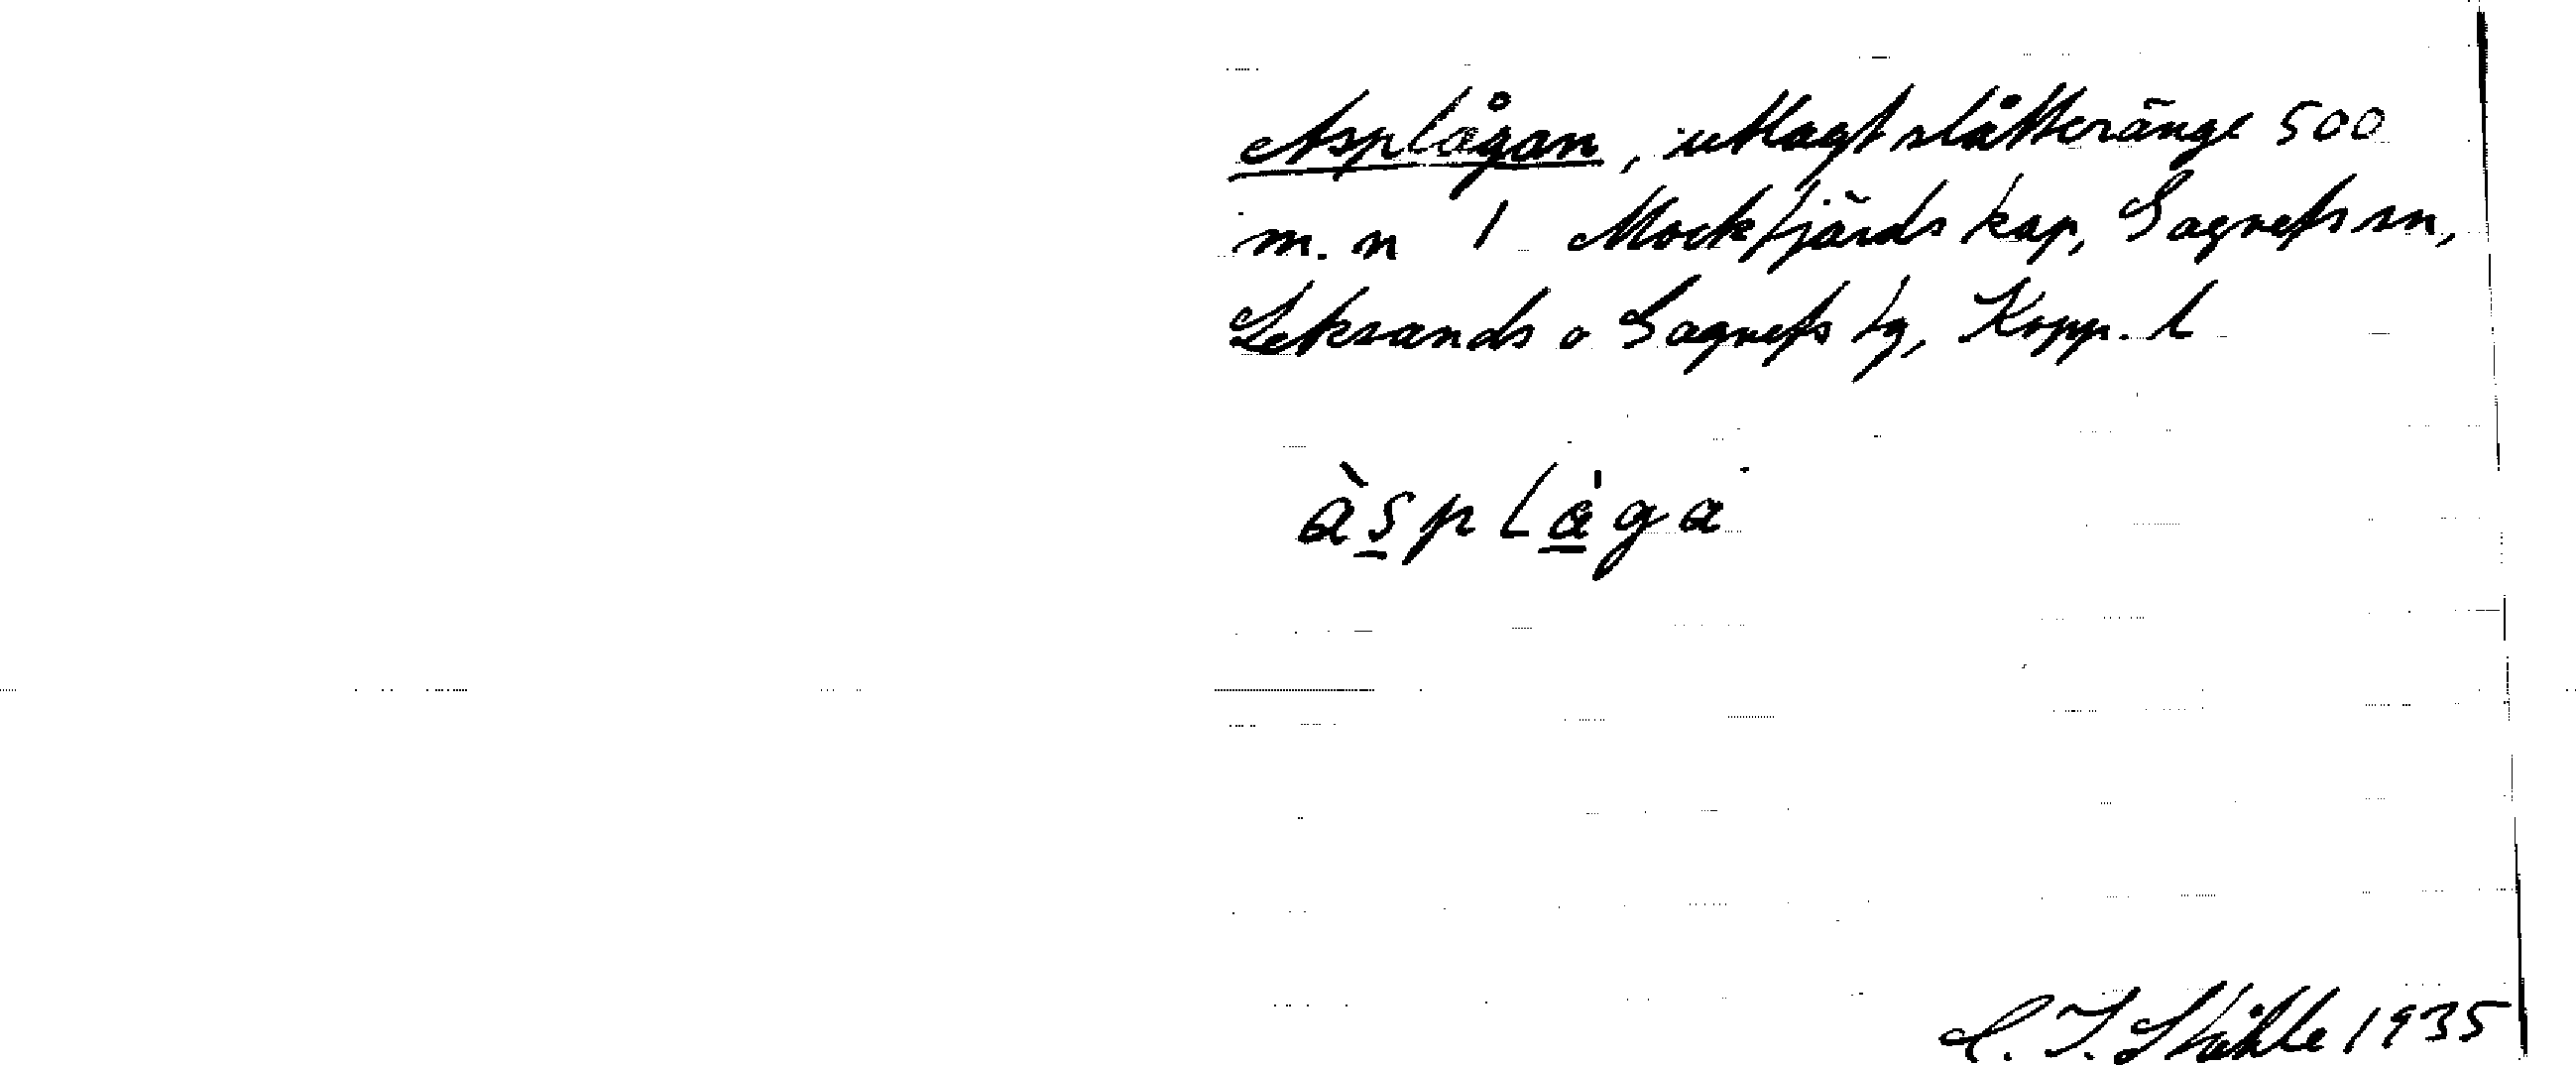 Asplågan, utlagt slåtteränge 500
m. n 1 Mockfjärds kap, Gagnefs sn,
Leksands o Gagnefs tg, Kopp. l
àsplåga
C. I. Ståhle 1935